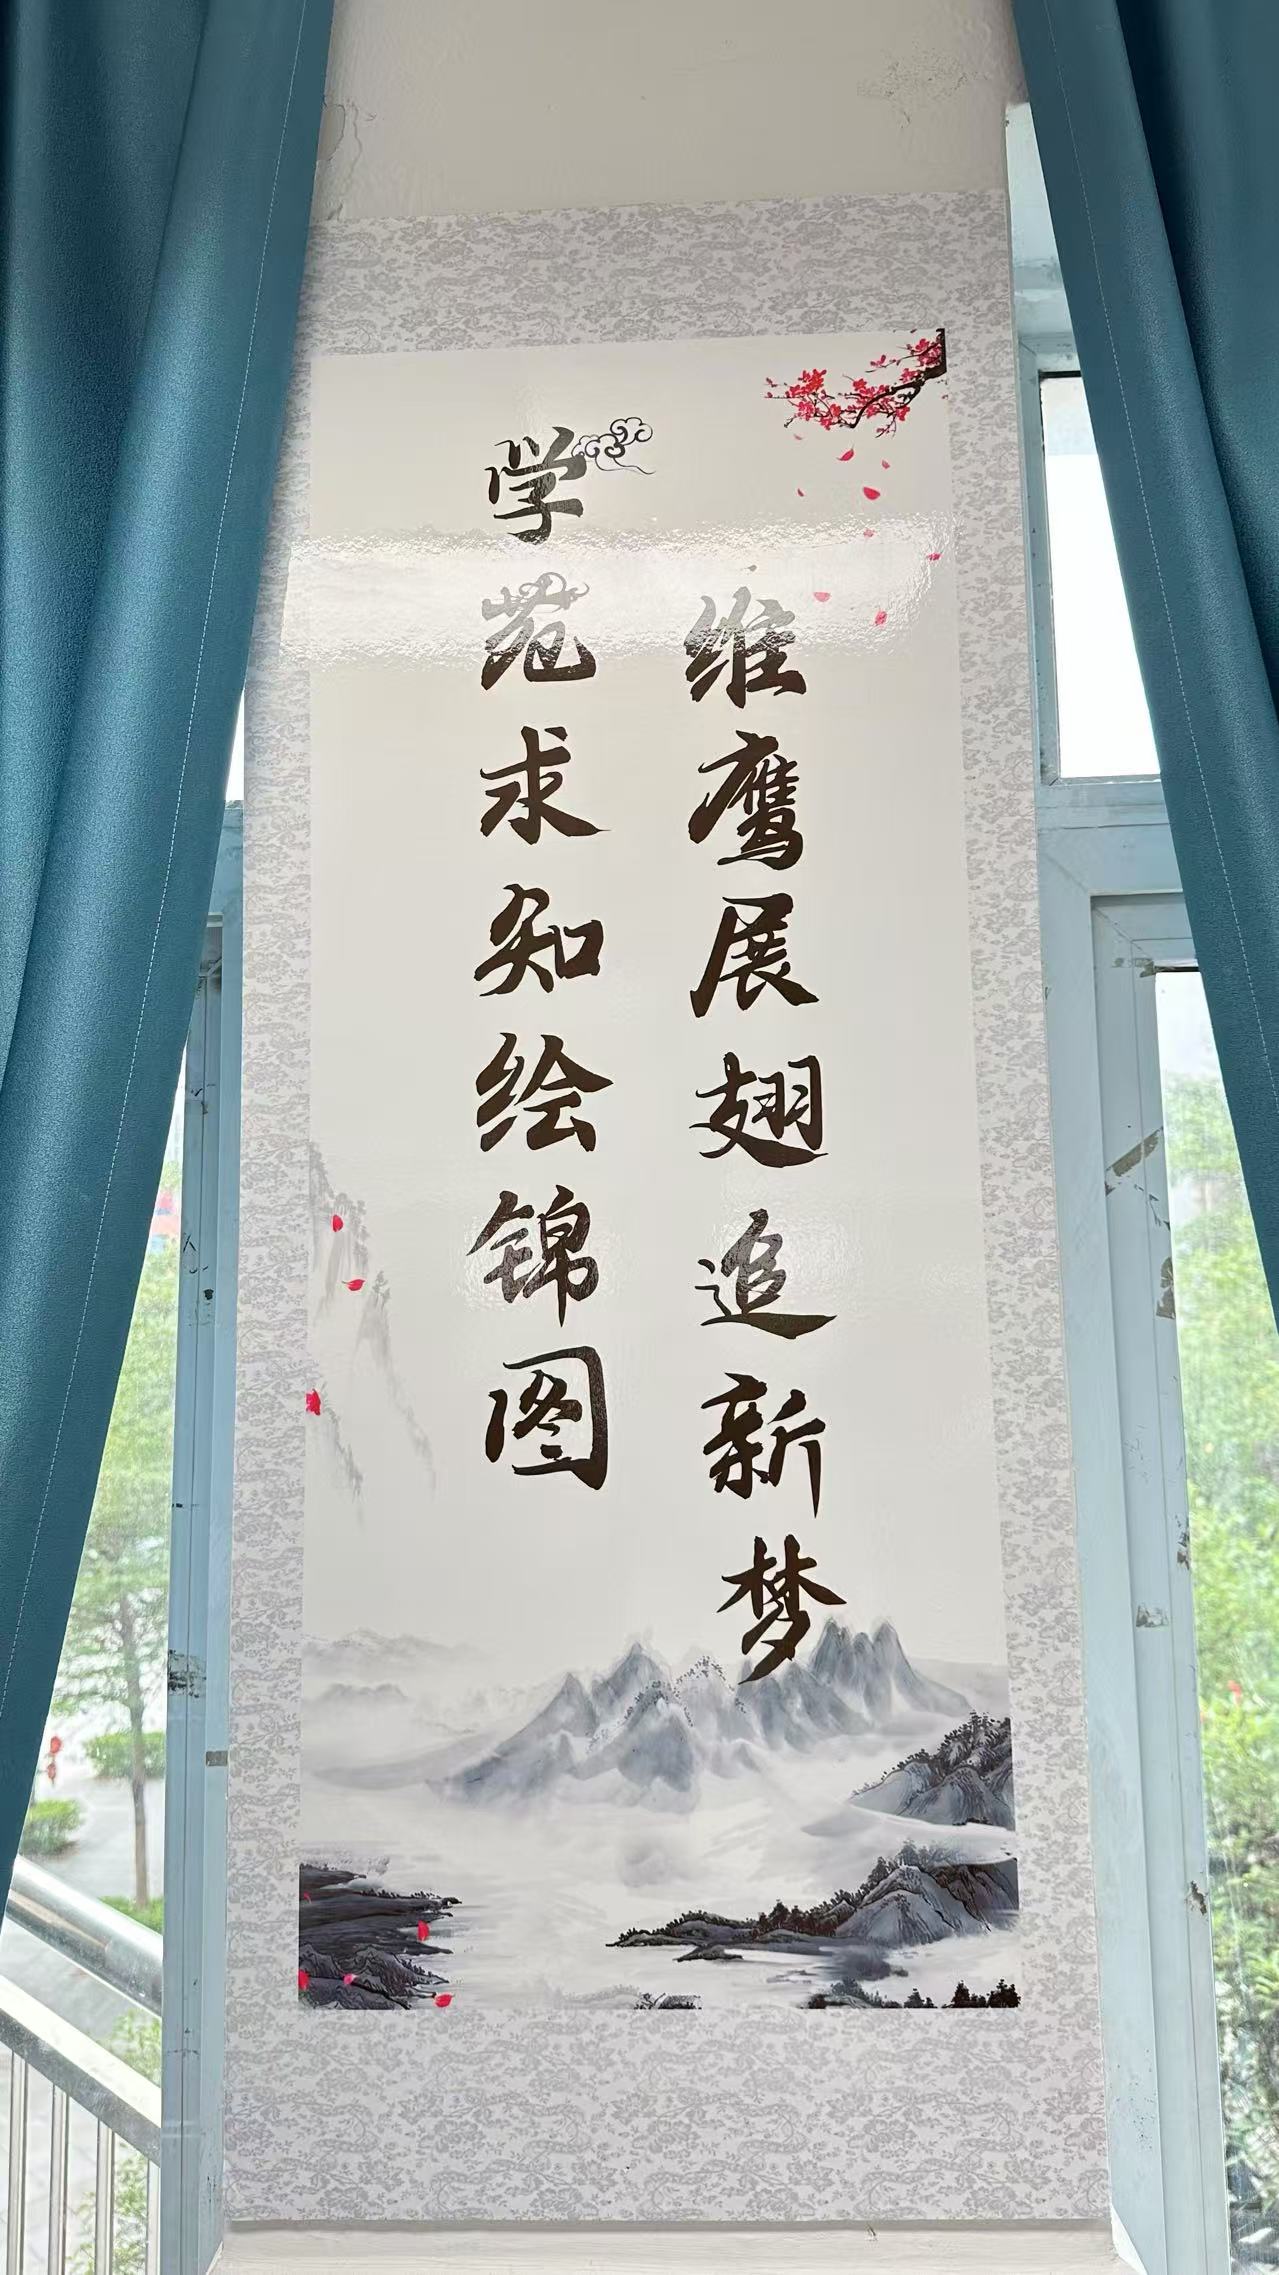 维鹰展翅追新梦
学苑求知绘锦图